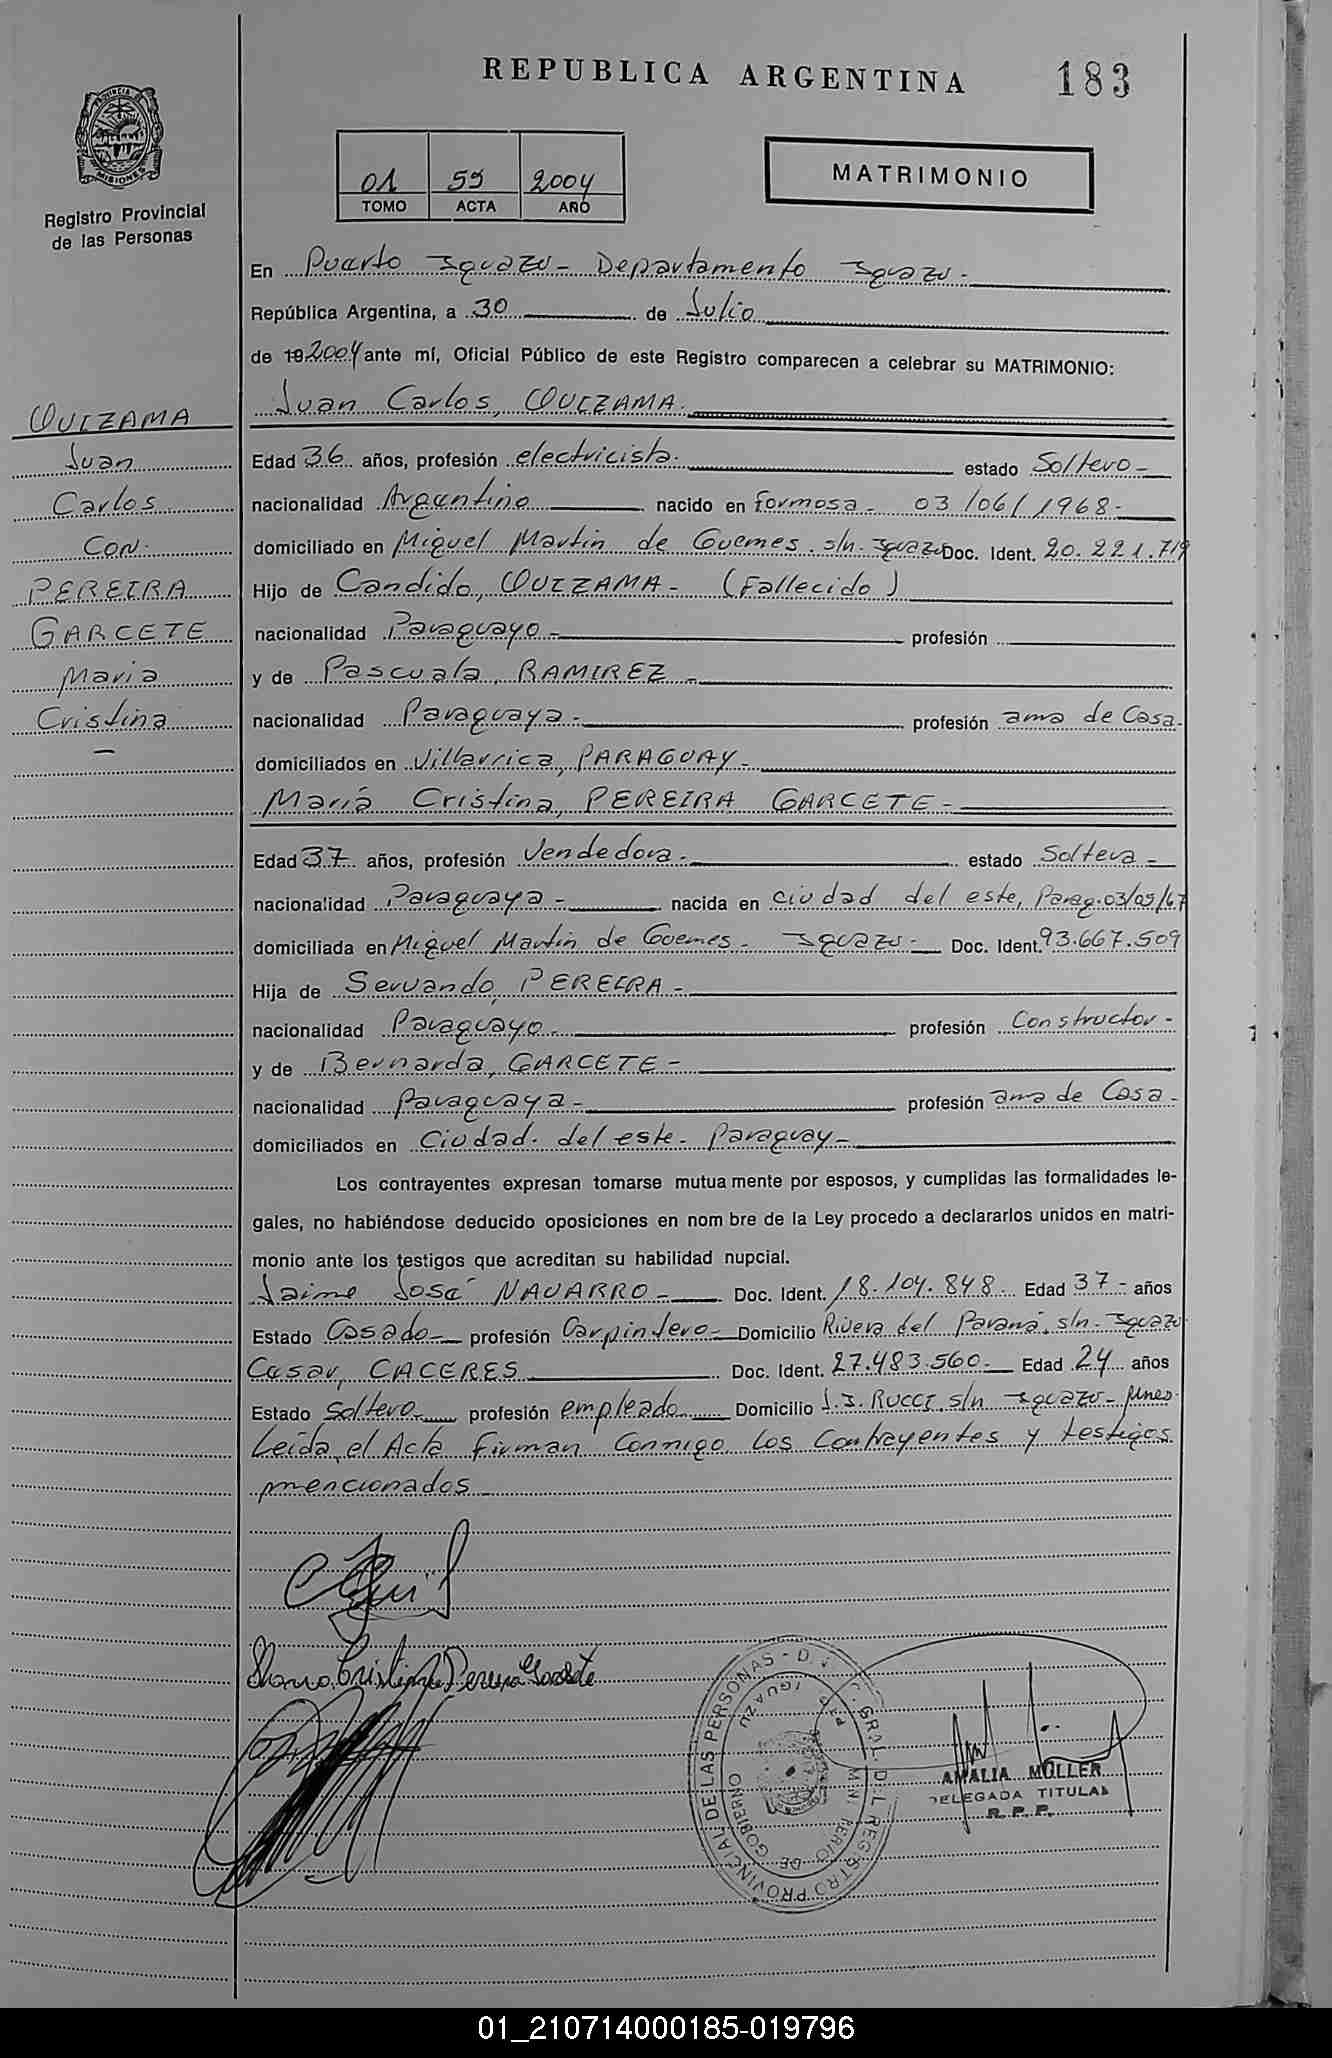 REPUBLICA ARGENTINA
183
PROVINCIA DE
MISIONES
Registro Provincial
de las Personas
01 59 2004
TOMO ACTA AÑO
MATRIMONIO
En Puerto Iguazu - Departamento Iguazu -
República Argentina, a 30 de Julio
de 19 2004 ante mí, Oficial Público de este Registro comparecen a celebrar su MATRIMONIO:
QUIZAMA
Juan
Carlos
CON.
PEREIRA
GARCETE
Maria
Cristina
-
Juan Carlos, QUIZAMA.
Edad 36 años, profesión electricista. estado Soltero -
nacionalidad Argentino nacido en Formosa - 03/06/1968 -
domiciliado en Miguel Martin de Guemes. s/n. Iguazu Doc. Ident. 20.221.719
Hijo de Candido, QUIZAMA - (Fallecido)
nacionalidad Paraguayo - profesión
y de Pascuala, RAMIREZ -
nacionalidad Paraguaya - profesión ama de Casa -
domiciliados en Villarrica, PARAGUAY -
Maria Cristina, PEREIRA GARCETE -
Edad 37 años, profesión Vendedora - estado Soltera -
nacionalidad Paraguaya - nacida en Ciudad del este, Parag. 03/05/67
domiciliada en Miguel Martin de Guemes - Iguazu - Doc. Ident. 93.667.509
Hija de Servando, PEREIRA -
nacionalidad Paraguayo - profesión Constructor -
y de Bernarda, GARCETE -
nacionalidad Paraguaya - profesión ama de Casa -
domiciliados en Ciudad. del este - Paraguay -
Los contrayentes expresan tomarse mutua mente por esposos, y cumplidas las formalidades le-
gales, no habiéndose deducido oposiciones en nom bre de la Ley procedo a declararlos unidos en matri-
monio ante los testigos que acreditan su habilidad nupcial.
Jaime José NAVARRO - Doc. Ident. 18.104.848 Edad 37 - años
Estado Casado - profesión Carpintero - Domicilio Rivera del Paraná, s/n - Iguazu
Cesar, CACERES Doc. Ident. 27.483.560 - Edad 24 años
Estado Soltero - profesión empleado Domicilio J. I. RUCCI, s/n Iguazu -
Leida el Acta firman Conmigo los Contrayentes y testigos
mencionados -
Maria Cristina Pereira Garcete
AMALIA MÜLLER
DELEGADA TITULAR
R. P. P.
01_210714000185-019796